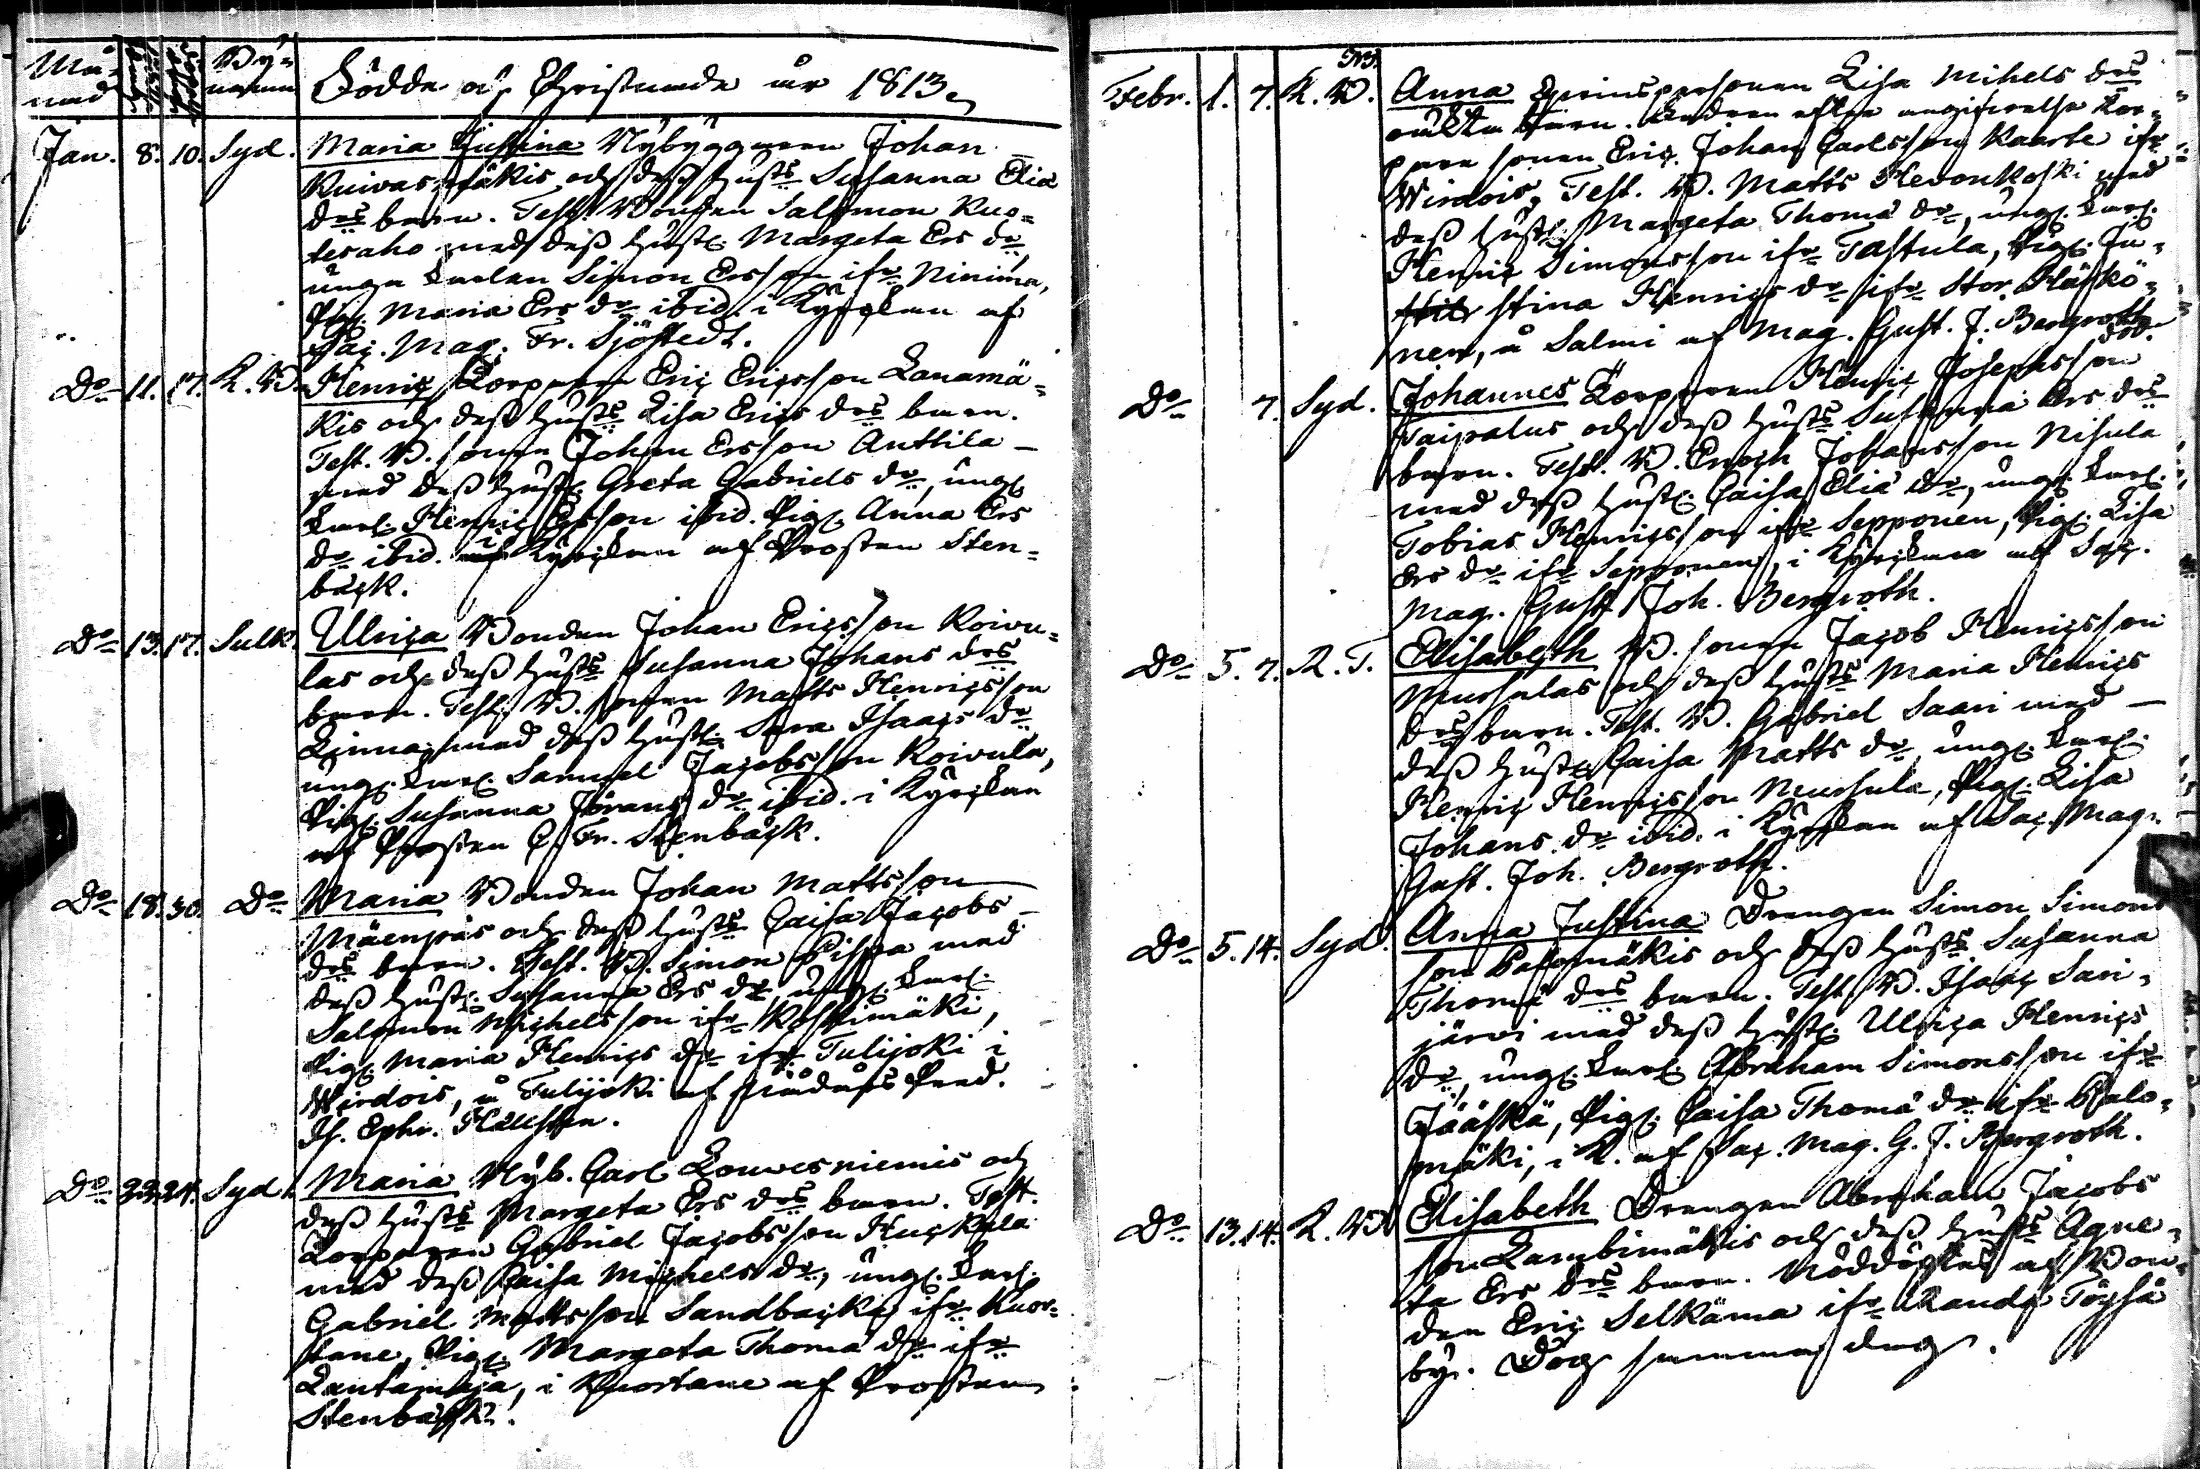 Månad
Bynamn
Födde och Christnade år 1813.
Jan. 8. 10. Syd. Maria Justina Nybyggaren Johan
Kuivasmäkis och dess hust:s Susanna Eliæ
d:rs barn. Test. Bonden Salomon Kuo=
tesaho med dess hust. Margeta Ers d:r,
unga karlen Simon Ersson ifr. Ninima,
Pig. Maria Ers d:r ibid. i Kyrckan af
Sac. Mag. Fr. Sjöstedt.
D:o 11. 17. K. B. Henric Torparen Eric Ericsson Lanamä=
kis och dess hust:s Lisa Erics d:rs barn.
Test. B. sonen Johan Ersson Anttila —
med dess hust. Greta Gabriels d:r, ung.
karl. Henric Ersson ibid. Pig. Anna Ers
d:r ibid. i Kyrckan af Prosten Sten=
bäck.
D:o 13. 17. Sulk. Ulrica Bonden Johan Ericsson Koivu=
las och dess hust:s Susanna Johans d:rs
barn. Test. B. sonen Matts Henricsson
Linna med dess hust. Sara Isaacs d:r
ung. karl. Samuel Jacobsson Koivula,
Pig. Susanna Jörans d:r ibid. i Kyrckan
af Prosten C. Fr. Stenbäck.
D:o 18. 30. D:o Maria Bonden Johan Mattsson
Mäenpäs och dess hust:s Caisa Jacobs —
d:rs barn. Test. B. Simon Pispa med
dess hust. Susanna Ers d:r, ung. karl.
Salomon Michelsson ifr. Koskimäki,
Pig. Maria Henrics d:r ifr. Tulijoki i
Wirdois, å Tulijoki af Pred.
Is. Ephr.
D:o 22. 24. Syd. Maria Nyb. Carl Louvesniemis och
dess hust:s Margeta Ers d:rs barn. Test.
Torparen Gabriel Jacobsson Huckala
med dess Caisa Michels d:r, ung. karl.
Gabriel Mattsson Sandbacka ifr. Kuor=
tane, Pig. Margeta Thomæ d:r ifr.
Lantamaja, i Kuortane af Prosten
Stenbäck.
Febr. 1. 7. K. B. Anna Lisa Mihels d:rs
oäkta barn. Fadren efter angifvelse Tor=
pare sonen Eric Johan Carlsson Kaarte ifr.
Wirdois, Test. B. Matts Hevonkoski med
dess hust. Margeta Thomæ d:r, ung. karl.
Henric Simonsson ifr. Tastula, Pig. Ju=
stina Henrics d:r ifr. Stor Häskö=
nen, å Salmi af Mag. Gust. J. Bergroth.
D:o 7. Syd. Johannes Torparen Henric Josephsson
Taipalus och dess hust:s Susanna Ers d:rs
barn. Test. B. Enoch Johansson Nisula
med dess hust. Caisa Eliæ d:r, ung. karl.
Tobias Henricsson ifr. Sepponen, Pig. Lisa
Ers d:r ifr. Sepponen, i Kyrckan af Sac.
Mag. Gust. Joh. Bergroth.
D:o 5. 7. R. T. Elisabeth B. sonen Jacob Henricsson
Mursulas och dess hust:s Maria Henrics
d:rs barn. Test. B. Gabriel Saari med —
dess hust. Caisa Matts d:r ung. karl.
Henric Henricsson Mursula, Pig. Lisa
Johans d:r ibid. i Kyrckan af Sac. Mag.
Gust. Joh. Bergroth.
D:o 5. 14. Syd. Anna Justina Drengen Simon Simons
son Palomäkis och dess hust:s Susanna
Thomæ d:rs barn. Test. B. Isaac Sari=
järvi med dess hust. Ulrica Henrics
d:r, ung. karl. Abraham Simonsson ifr.
Jääskä, Pig. Caisa Thomæ d:r ifr. Palo=
mäki, i K. af Sac. Mag. G. J. Bergroth.
D:o 13. 14. K. B. Elisabeth Drengen Abraham Jacobs
son Lambimäkis och dess hust:s Agne=
ta Ers d:rs barn. Nöddöptes af Bon=
den Eric Selkäma ifr. Randa Töysä
by. Dog samma dag.